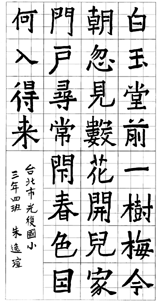 白玉堂前一樹梅今
朝忽見數花開兒家
門戶尋常閇春色因
何入得来
台北市光復國小
三年四班 朱逸瑄